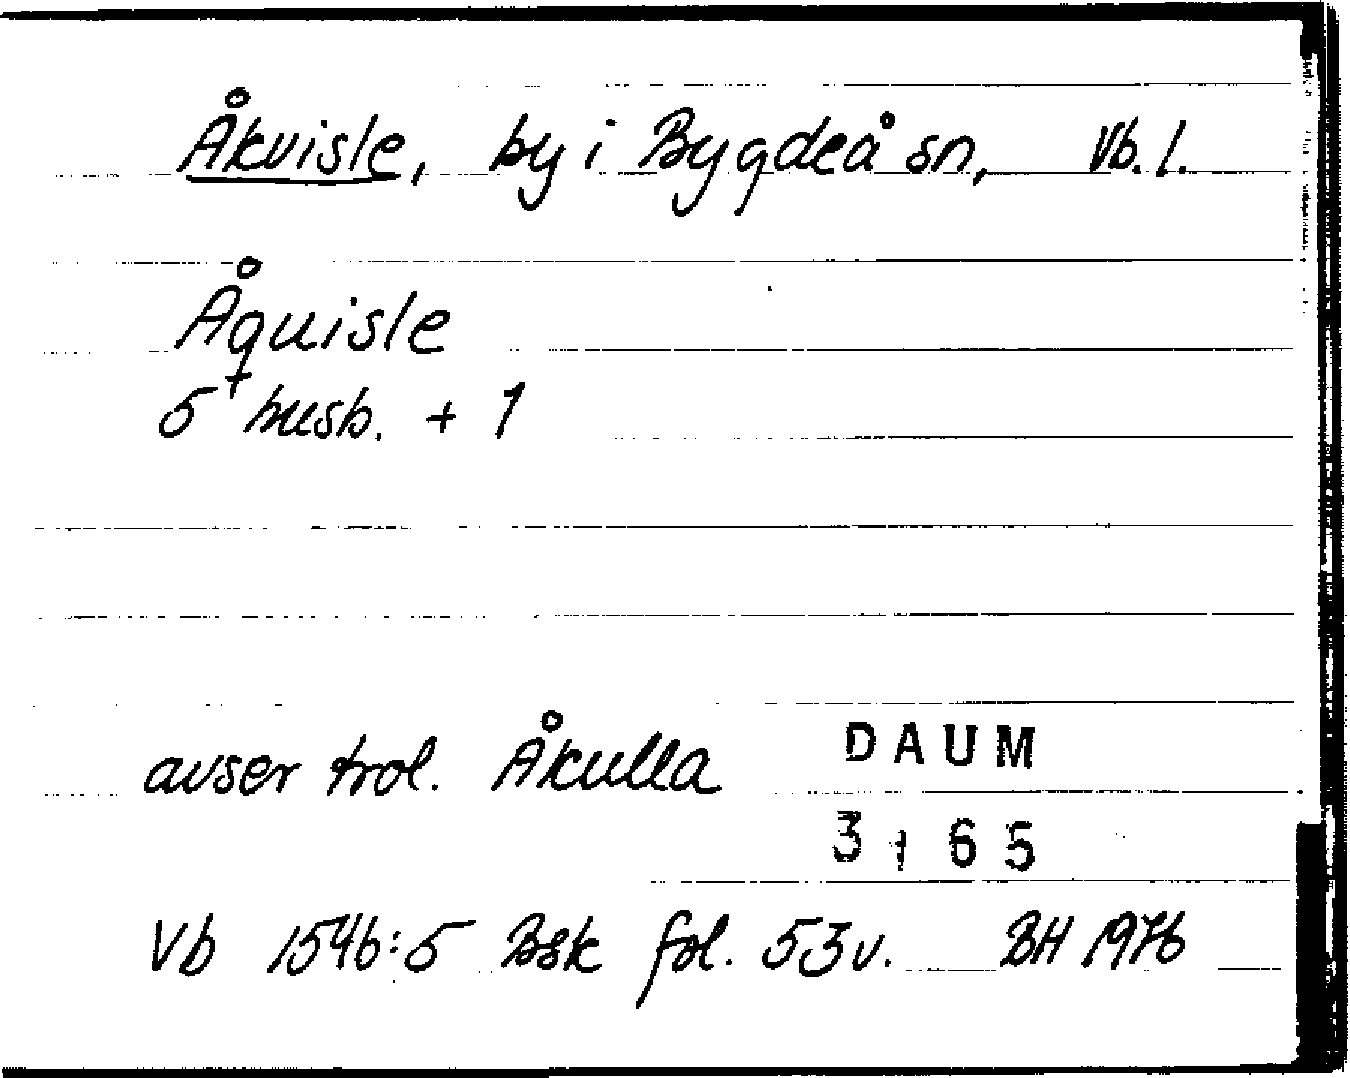 Åkvisle, by i Bygdeå sn, Vb. l.
Åquisle
5 husb. + 1
avser trol. Åkulla
DAUM
3165
Vb 1546:5 Bsk fol. 53v. BH 1976